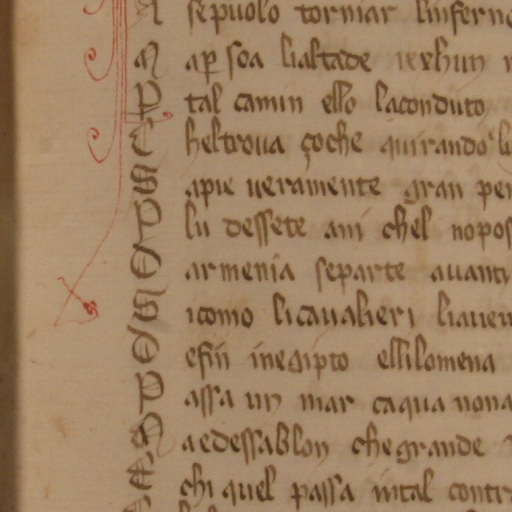 sepuolo torniar linferno
M ap soa lialtade
P tal camin ello laconduto
C heltroua çoche quirando li
S apie ueramente gran pen
P lu dessete ani chel nopos
D armenia separte auanti
S icomo licaualieri liaueu
D efin inegipto ellilomena
P assa un mar caqua nona
M aedessablon chegrande
E chi quel passa intal contr